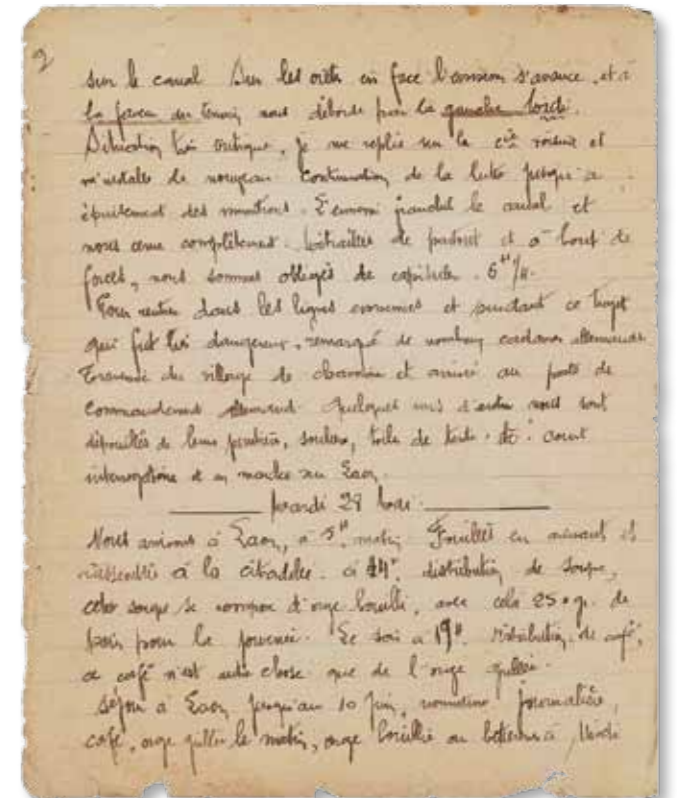 2
sur le canal Sur les crêtes en face l'ennemi s'avance, et à
la faveur du terrain nous déborde par la gauche
Situation très critique, je me replie sur la Cie voisine et
m'installe de nouveau continuation de la lutte jusqu'à
épuisement des munitions. L'ennemi franchit le canal et
nous cerne complètement. de partout et à bout de
forces, nous sommes obligés de capituler. 6H
Pour rentrer dans les lignes ennemies et pendant ce trajet
qui fut très dangereux, remarqué de nombreux cadavres allemands
Traversée du village de et arrivée au poste de
commandement allemand Quelques uns d'entre nous sont
dépouillés de leurs souliers, toile de tente. etc. court
interrogatoire et en marche sur Laon.
Mardi 28
Nous arrivons à Laon, à 5H matin Fouillés en arrivant et
rassemblés à la citadelle. à distribution de soupe,
cette soupe se compose d'orge bouilli, avec cela 250 g. de
pain pour la journée. Le soir à 19H. distribution de café,
ce café n'est autre chose que de l'orge grillée.
Séjour à Laon jusqu'au 10 juin, nourriture journalière,
café, orge grillée le matin, orge bouillie ou betteraves à Mardi